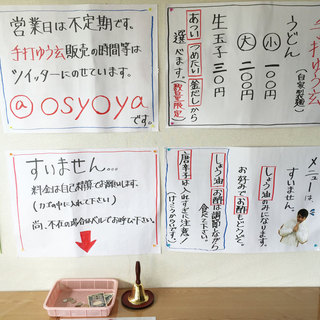 営業日は不定期です。
手打ゆう玄販売の時間等は
ツイッターにのせています。
@osyoyaです。
うどん
(自家製麺)
小 一〇〇円
大 二〇〇円
生玉子 三〇円
あつい つめたい 釜だしから
選べます。(数量限定)
すいません...
料金は自己精算でお願いします。
(カゴの中に入れて下さい)
尚、不在の場合はベルでお呼び下さい。
メニューは、
すいません。
しょう油のみになります。
お好みでお酢もどうぞ。
しょう油、お酢は調節しながら
食べて下さい。
唐辛子は入れすぎに注意!